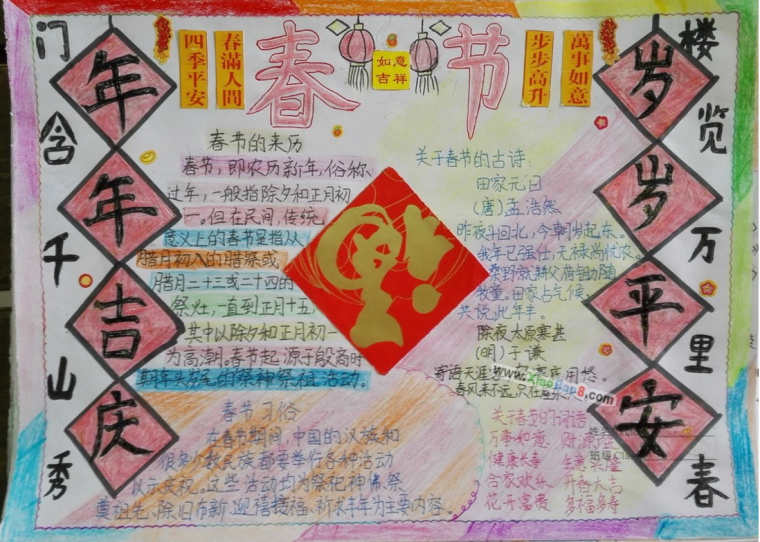 春节
四季平安
春滿人間
如意
吉祥
步步高升
萬事如意
门含千山秀
楼览万里春
年年吉庆
岁岁平安
春节的来历
春节，即农历新年，俗称
过年，一般指除夕和正月初
一。但在民间，传统
意义上的春节是指从
腊月初八的腊祭或
腊月二十三或二十四的
祭灶，一直到正月十五，
其中以除夕和正月初一
为高潮。春节起源于殷商时
期年头岁尾的祭神祭祖活动。
春节习俗
在春节期间，中国的汉族和
很多少数民族都要举行各种活动
以示庆祝。这些活动均为祭祀神佛、祭
奠祖先、除旧布新、迎禧接福、祈求丰年为主要内容。
关于春节的古诗：
田家元日
(唐)孟浩然
昨夜斗回北，今朝岁起东。
我年已强仕，无禄尚忧农。
桑野就耕父，荷锄随
牧童。田家占气候，
共说此年丰。
除夜太原寒甚
(明)于谦
寄语天涯
春风来不远，只在
关于春节的
万事如意
健康长寿
合家欢乐
花开富贵
开裕大吉
多福多寿